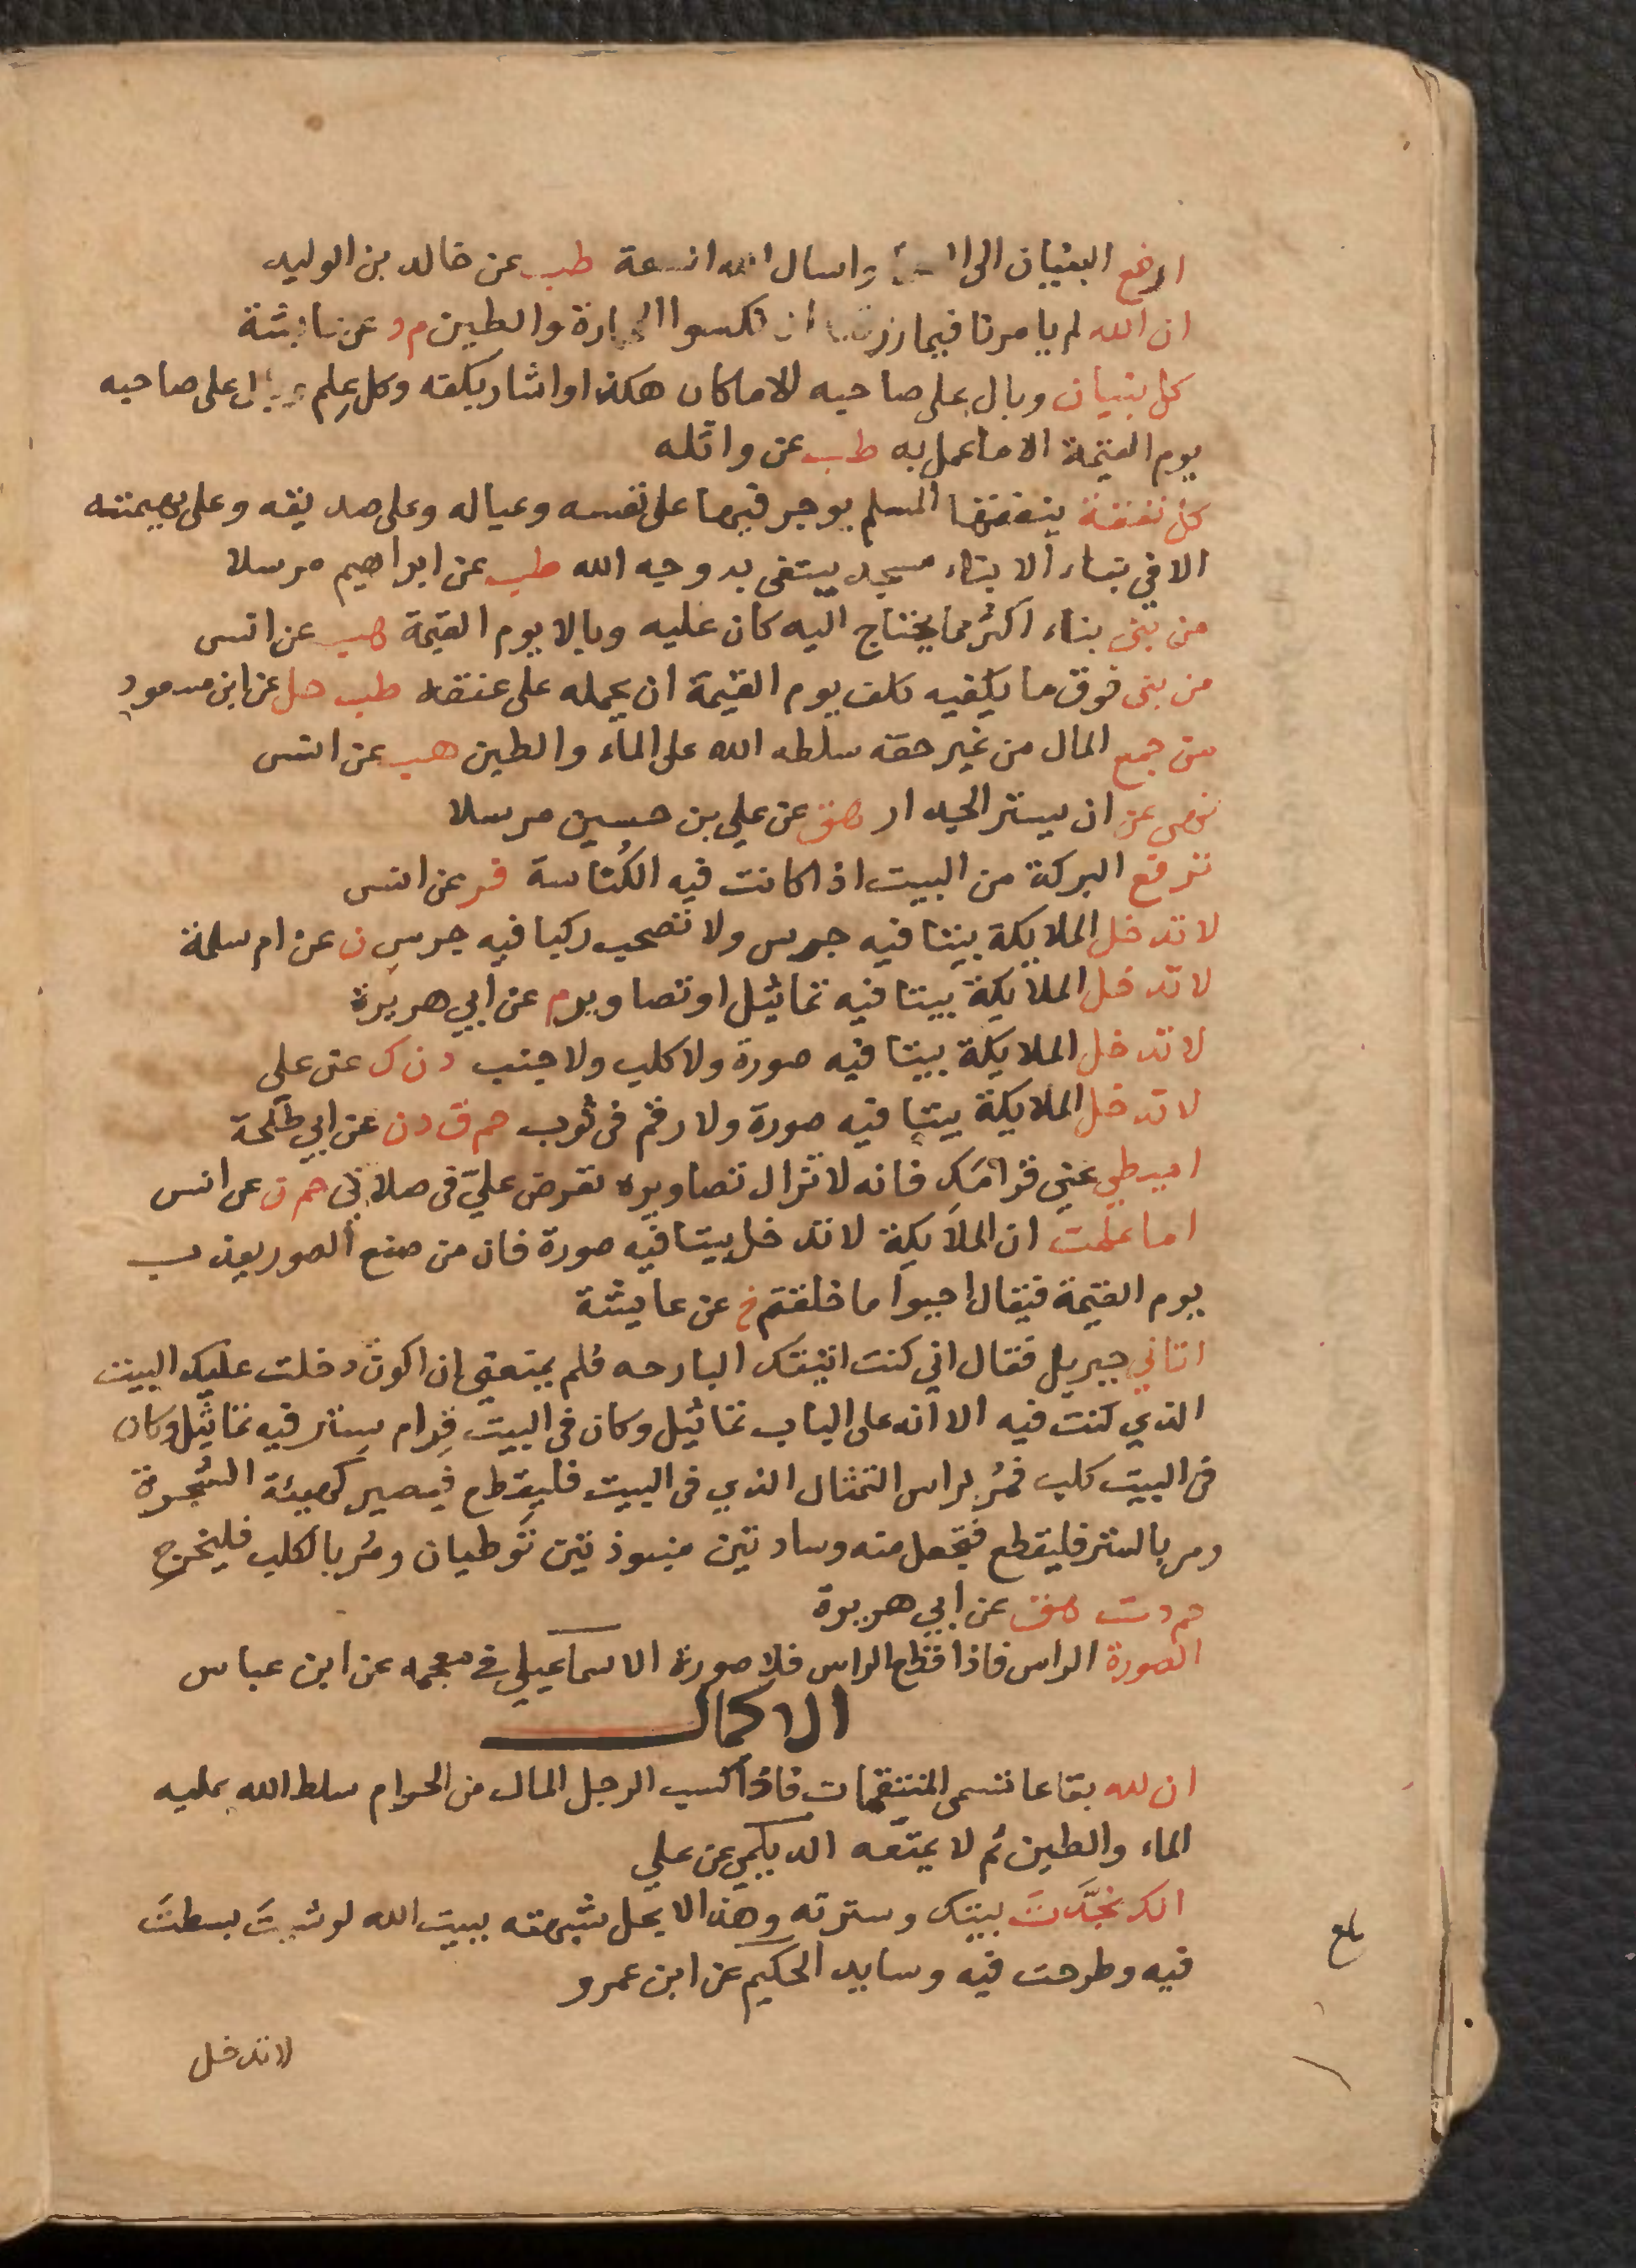 ارفع البنيان الى السماء واسال الله السعة طب عن خالد بن الوليد
ان الله لم يامرنا فيما رزقنا ان نكسوا الحجارة والطين م د عن عايشة
كل بنيان وبال على صاحبه الا ما كان هكذا واشار بكفه وكل علم وبال على صاحبه
يوم القيمة الا ما عمل به طب عن واثله
كل نفقة ينفقها المسلم يوجر فيها على نفسه وعياله وعلى صديقه وعلى بهيمته
الا في بناء الا بناء مسجد يبتغى به وجه الله طب عن ابراهيم مرسلا
من بنى بناء اكثر مما يحتاج اليه كان عليه وبالا يوم القيمة هب عن انس
من بنى فوق ما يكفيه كلف يوم القيمة ان يحمله على عنقه طب حل عن ابن مسعود
من جمع المال من غير حقه سلطه الله على الماء والطين هب عن انس
نهى عن ان يستر الجدار هق عن علي بن حسين مرسلا
ترفع البركة من البيت اذا كانت فيه الكُناسة فر عن انس
لا تدخل الملايكة بيتا فيه جرس ولا تصحب ركبا فيه جرس ن عن ام سلمة
لا تدخل الملايكة بيتا فيه تماثيل او تصاوير م عن ابي هريرة
لا تدخل الملايكة بيتا فيه صورة ولا كلب ولا جنب د ن ك عن علي
لا تدخل الملايكة بيتا فيه صورة ولا رقم فى ثوب حم ق د ن عن ابي طلحة
اميطي عني قرامك فانه لا تزال تصاويره تعرض عليّ فى صلاتي حم خ عن انس
اما علمت ان الملايكة لا تدخل بيتا فيه صورة فان من صنع الصور يعذب
يوم القيمة فيقال احيوا ما خلقتم خ عن عايشة
اتاني جبريل فقال اني كنت اتيتك البارحه فلم يمنعني ان اكون دخلت عليك البيت
الذي كنت فيه الا انه على الباب تماثيل وكان فى البيت قِرام ستر فيه تماثيل وكان
فى البيت كلب فمُر براس التمثال الذي فى البيت فليقطع فيصير كهيئة الشجرة
ومر بالستر فليقطع فيجعل منه وسادتين منبوذتين تُوطيان ومُر بالكلب فليخرج
حم د ت هق عن ابي هريرة
الصورة الراس فاذا قطع الراس فلا صورة الاسماعيلي في معجمه عن ابن عباس
الاكمال
ان لله بقاعا تسمى المنتقمات فاذا كسب الرجل المال من الحرام سلط الله عليه
الماء والطين ثم لا يمتعه الديلمي عن علي
انك نجّدتَ بيتك وسترته وهذا لا يحل شبهته ببيت الله لو شيت بسطت
فيه وطرحت فيه وسايد الحكيم عن ابن عمرو
بلغ
لا تدخل